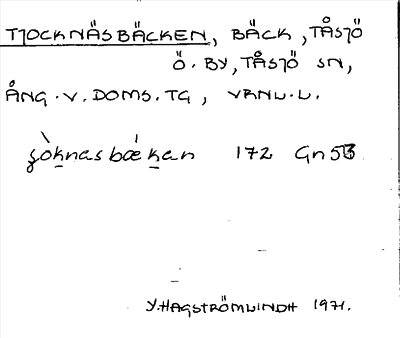 TJOCKNÄSBÄCKEN, BÄCK, TÅSJÖ
Ö. BY, TÅSJÖ SN,
ÅNG. V. DOMS. TG, VRNL. L.
şòk̲nasbǽk̲an 172 Gn 5B
Y. HAGSTRÖMLINDH 1971.